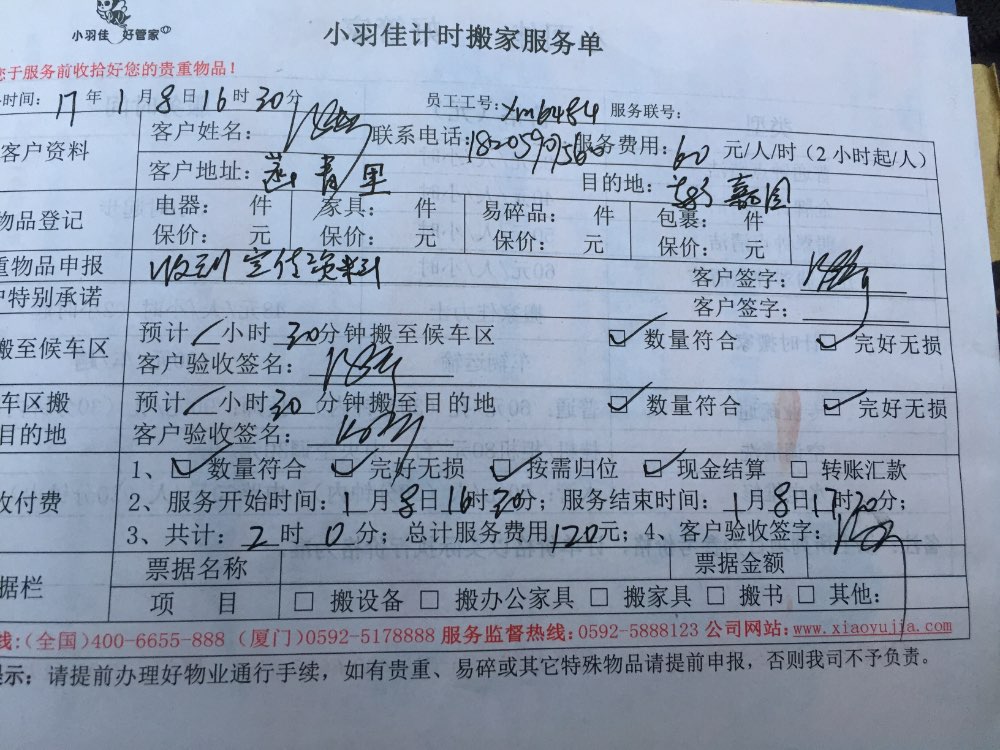 小羽佳 好管家
小羽佳计时搬家服务单
您于服务前收拾好您的贵重物品！
时间：17年1月8日16时30分 员工工号：xm6484 服务联号：
客户资料 客户姓名： 联系电话：18205907560 服务费用：60元/人/时（2小时起/人）
客户地址：莲青里 目的地：嘉园
物品登记 电器： 件 家具： 件 易碎品： 件 包裹： 件
保价： 元 保价： 元 保价： 元 保价： 元
重物品申报 收到宣传资料 客户签字：
户特别承诺 客户签字：
搬至候车区 预计/小时30分钟搬至候车区 ☑ 数量符合 ☑ 完好无损
客户验收签名：
车区搬 预计/小时30分钟搬至目的地 ☑ 数量符合 ☑ 完好无损
目的地 客户验收签名：
收付费 1、☑ 数量符合 ☑ 完好无损 ☑ 按需归位 ☑ 现金结算 □ 转账汇款
2、服务开始时间：1月8日16时30分；服务结束时间：1月8日17时30分；
3、共计：2时0分；总计服务费用120元；4、客户验收签字：
据栏 票据名称 票据金额
项 目 □ 搬设备 □ 搬办公家具 □ 搬家具 □ 搬书 □ 其他：
线：（全国）400-6655-888（厦门）0592-5178888 服务监督热线：0592-5888123 公司网站：www.xiaoyujia.com
示：请提前办理好物业通行手续，如有贵重、易碎或其它特殊物品请提前申报，否则我司不予负责。